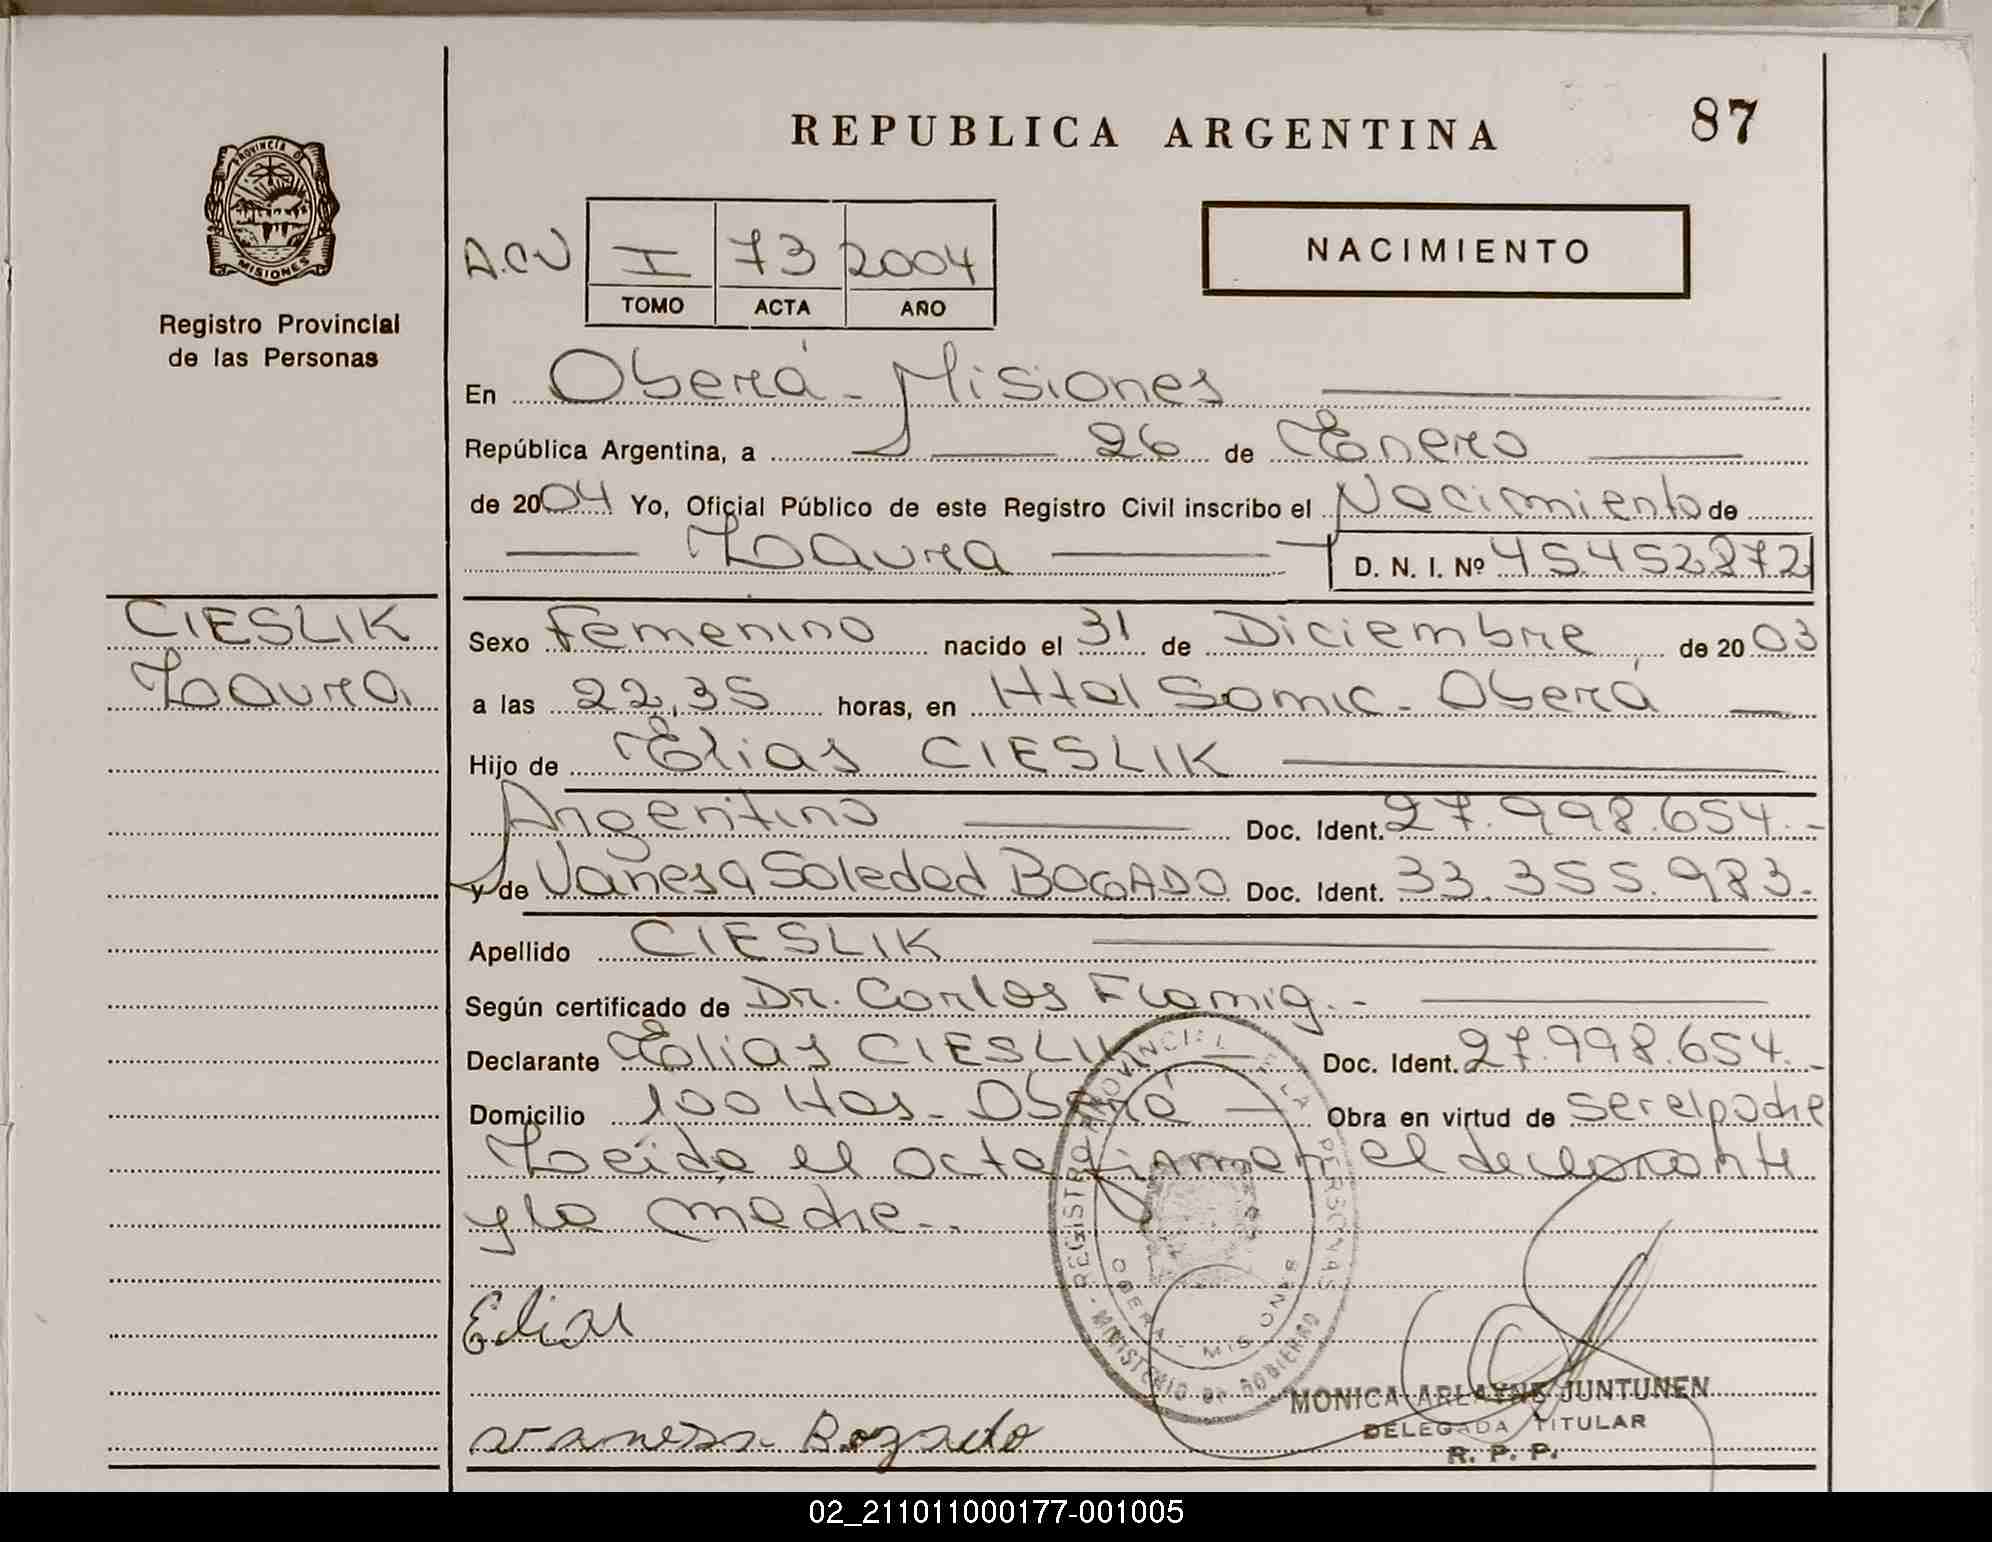 REPUBLICA ARGENTINA
87
PROVINCIA D
MISIONES
Registro Provincial
de las Personas
A.C.U
I 73 2004
TOMO ACTA AÑO
NACIMIENTO
En Oberá - Misiones
República Argentina, a 26 de Enero
de 2004 Yo, Oficial Público de este Registro Civil inscribo el Nacimiento de
Laura D. N. I. Nº 45452872
CIESLIK
Laura
Sexo Femenino nacido el 31 de Diciembre de 2003
a las 22,35 horas, en Htal Samic - Oberá
Hijo de Elias CIESLIK
Argentino Doc. Ident. 27.998.654.-
y de Vanesa Soledad BOGADO Doc. Ident. 33.355.983.-
Apellido CIESLIK
Según certificado de Dr. Carlos .-
Declarante Elias CIESLIK Doc. Ident. 27.998.654.-
Domicilio 100 Has - Oberá Obra en virtud de ser el padre
Leída el acta firman el declarante
y la madre.-
Elias
vanesa Bogado
REGISTRO PROVINCIAL DE LAS PERSONAS
OBERA - MISIONES
MINISTERIO DE GOBIERNO
MONICA ARLAYNE JUNTUNEN
DELEGADA TITULAR
R. P. P.
02_211011000177-001005